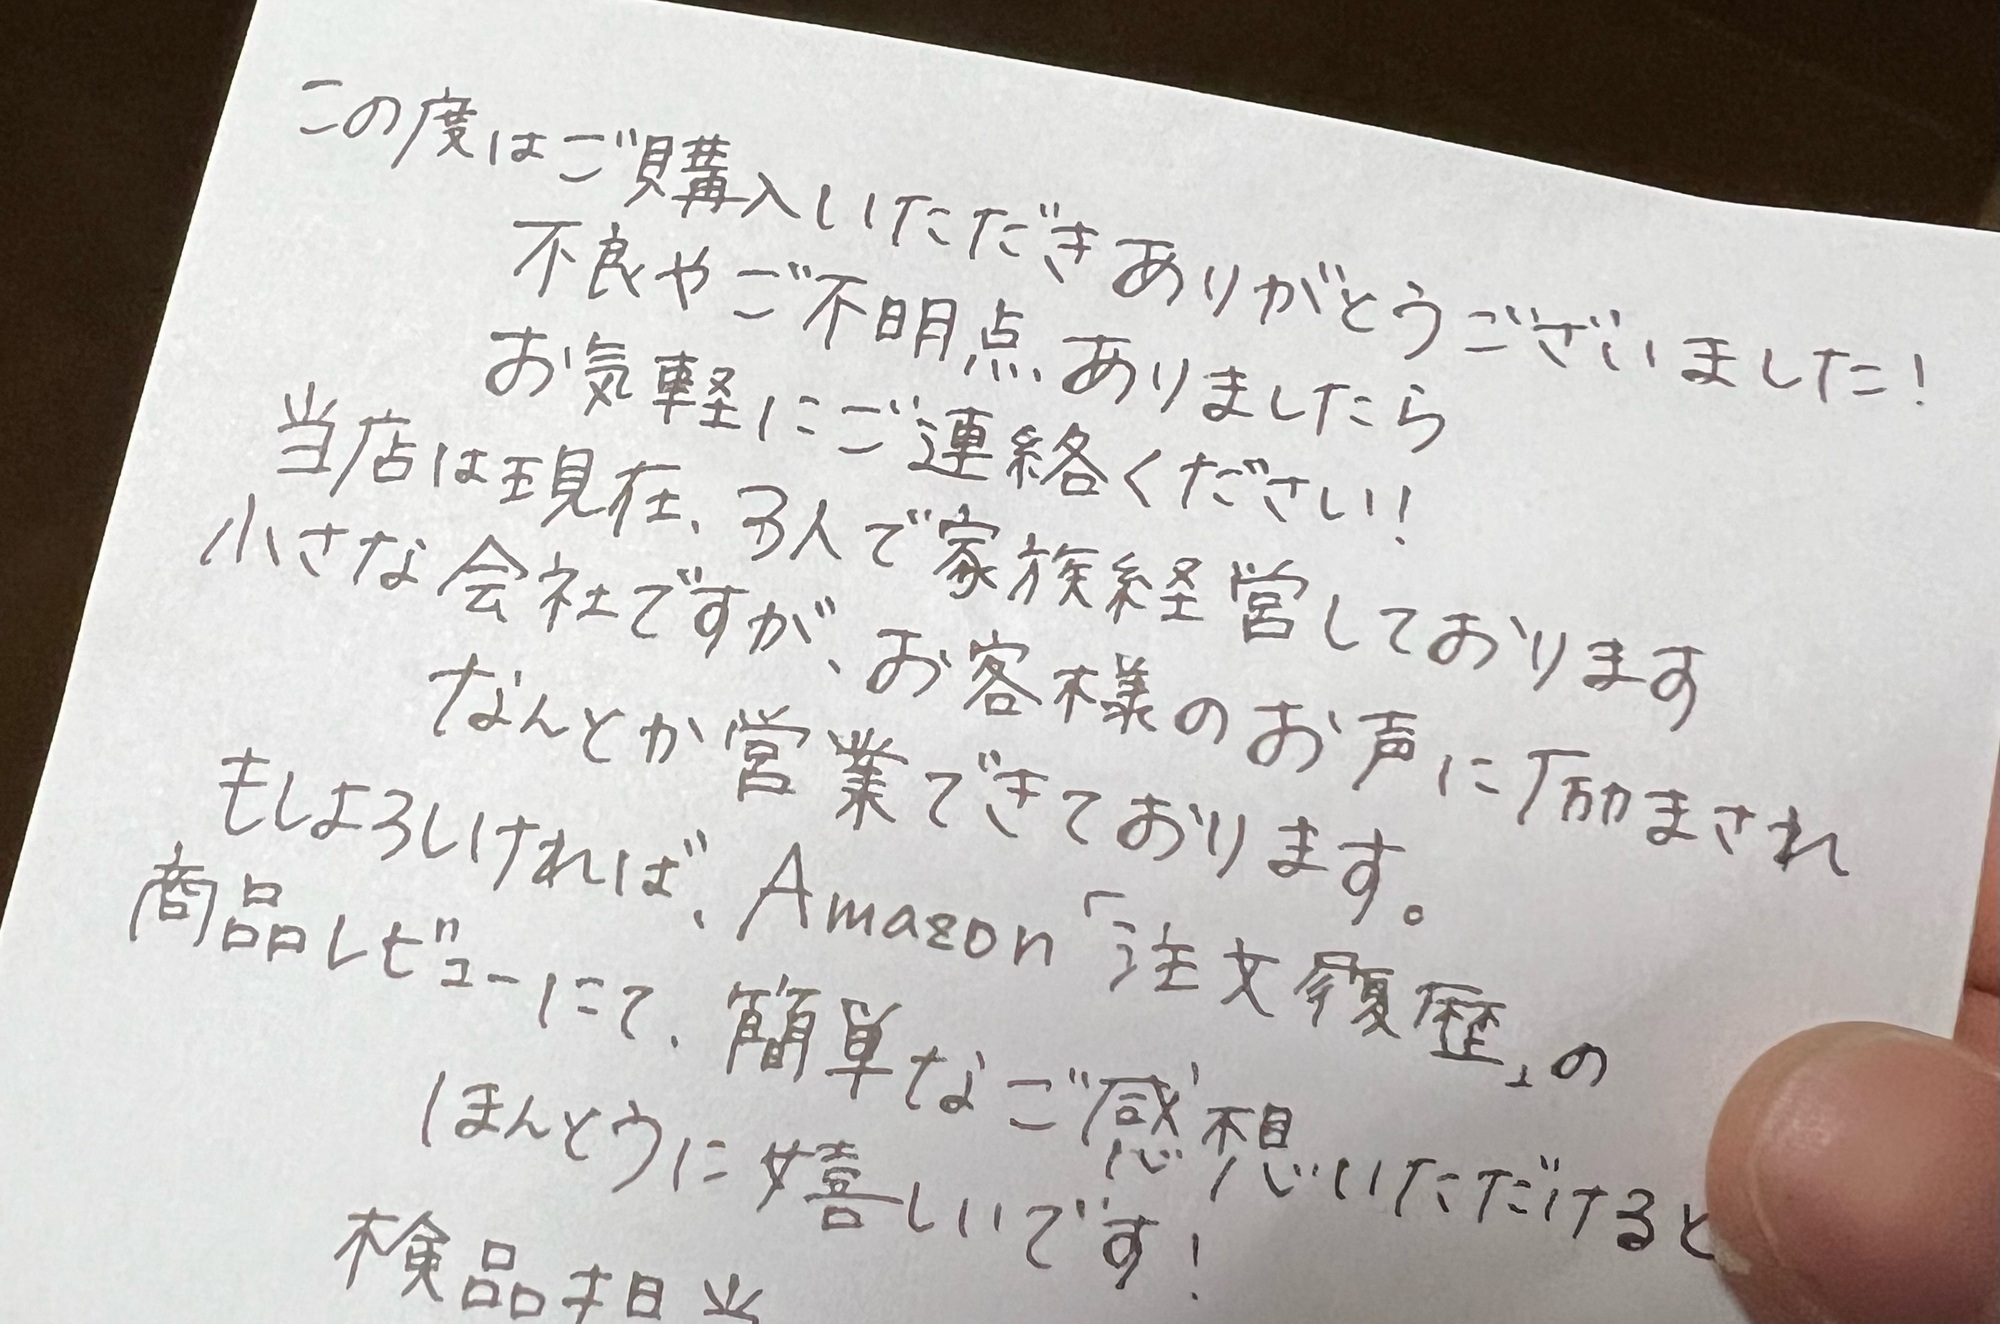 この度はご購入いただきありがとうございました!
不良やご不明点ありましたら
お気軽にご連絡ください!
当店は現在、3人で家族経営しております
小さな会社ですが、お客様のお声に励まされ
なんとか営業できております。
もしよろしければ、Amazon「注文履歴」の
商品レビューにて、簡単なご感想いただけると
ほんとうに嬉しいです!
検品担当